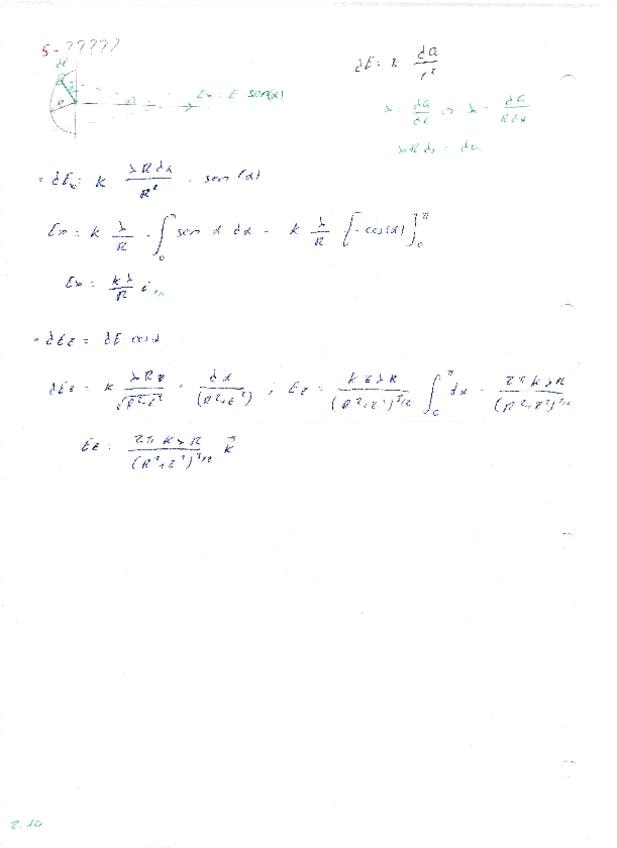 5 - ?????
dE = k dQ/r²
dl
R
Ex = E sen(α)
λ = dQ/dl => λ = dQ/R dα
λ R dα = dQ
• dEx = k λ R dα/R² · sen(α)
Ex = k λ/R · ∫₀^π sen α dα = k λ/R [-cos(α)]₀^π
Ex = kλ/R i
• dEz = dE cosα
dEz = k λRz/√R²+z² · dα/(R²+z²) ; Ez = k z λ R/(R²+z²)^3/2 ∫₀^π dα = zπkλR/(R²+z²)^3/2
Ez = zπkλR/(R²+z²)^3/2 k⃗